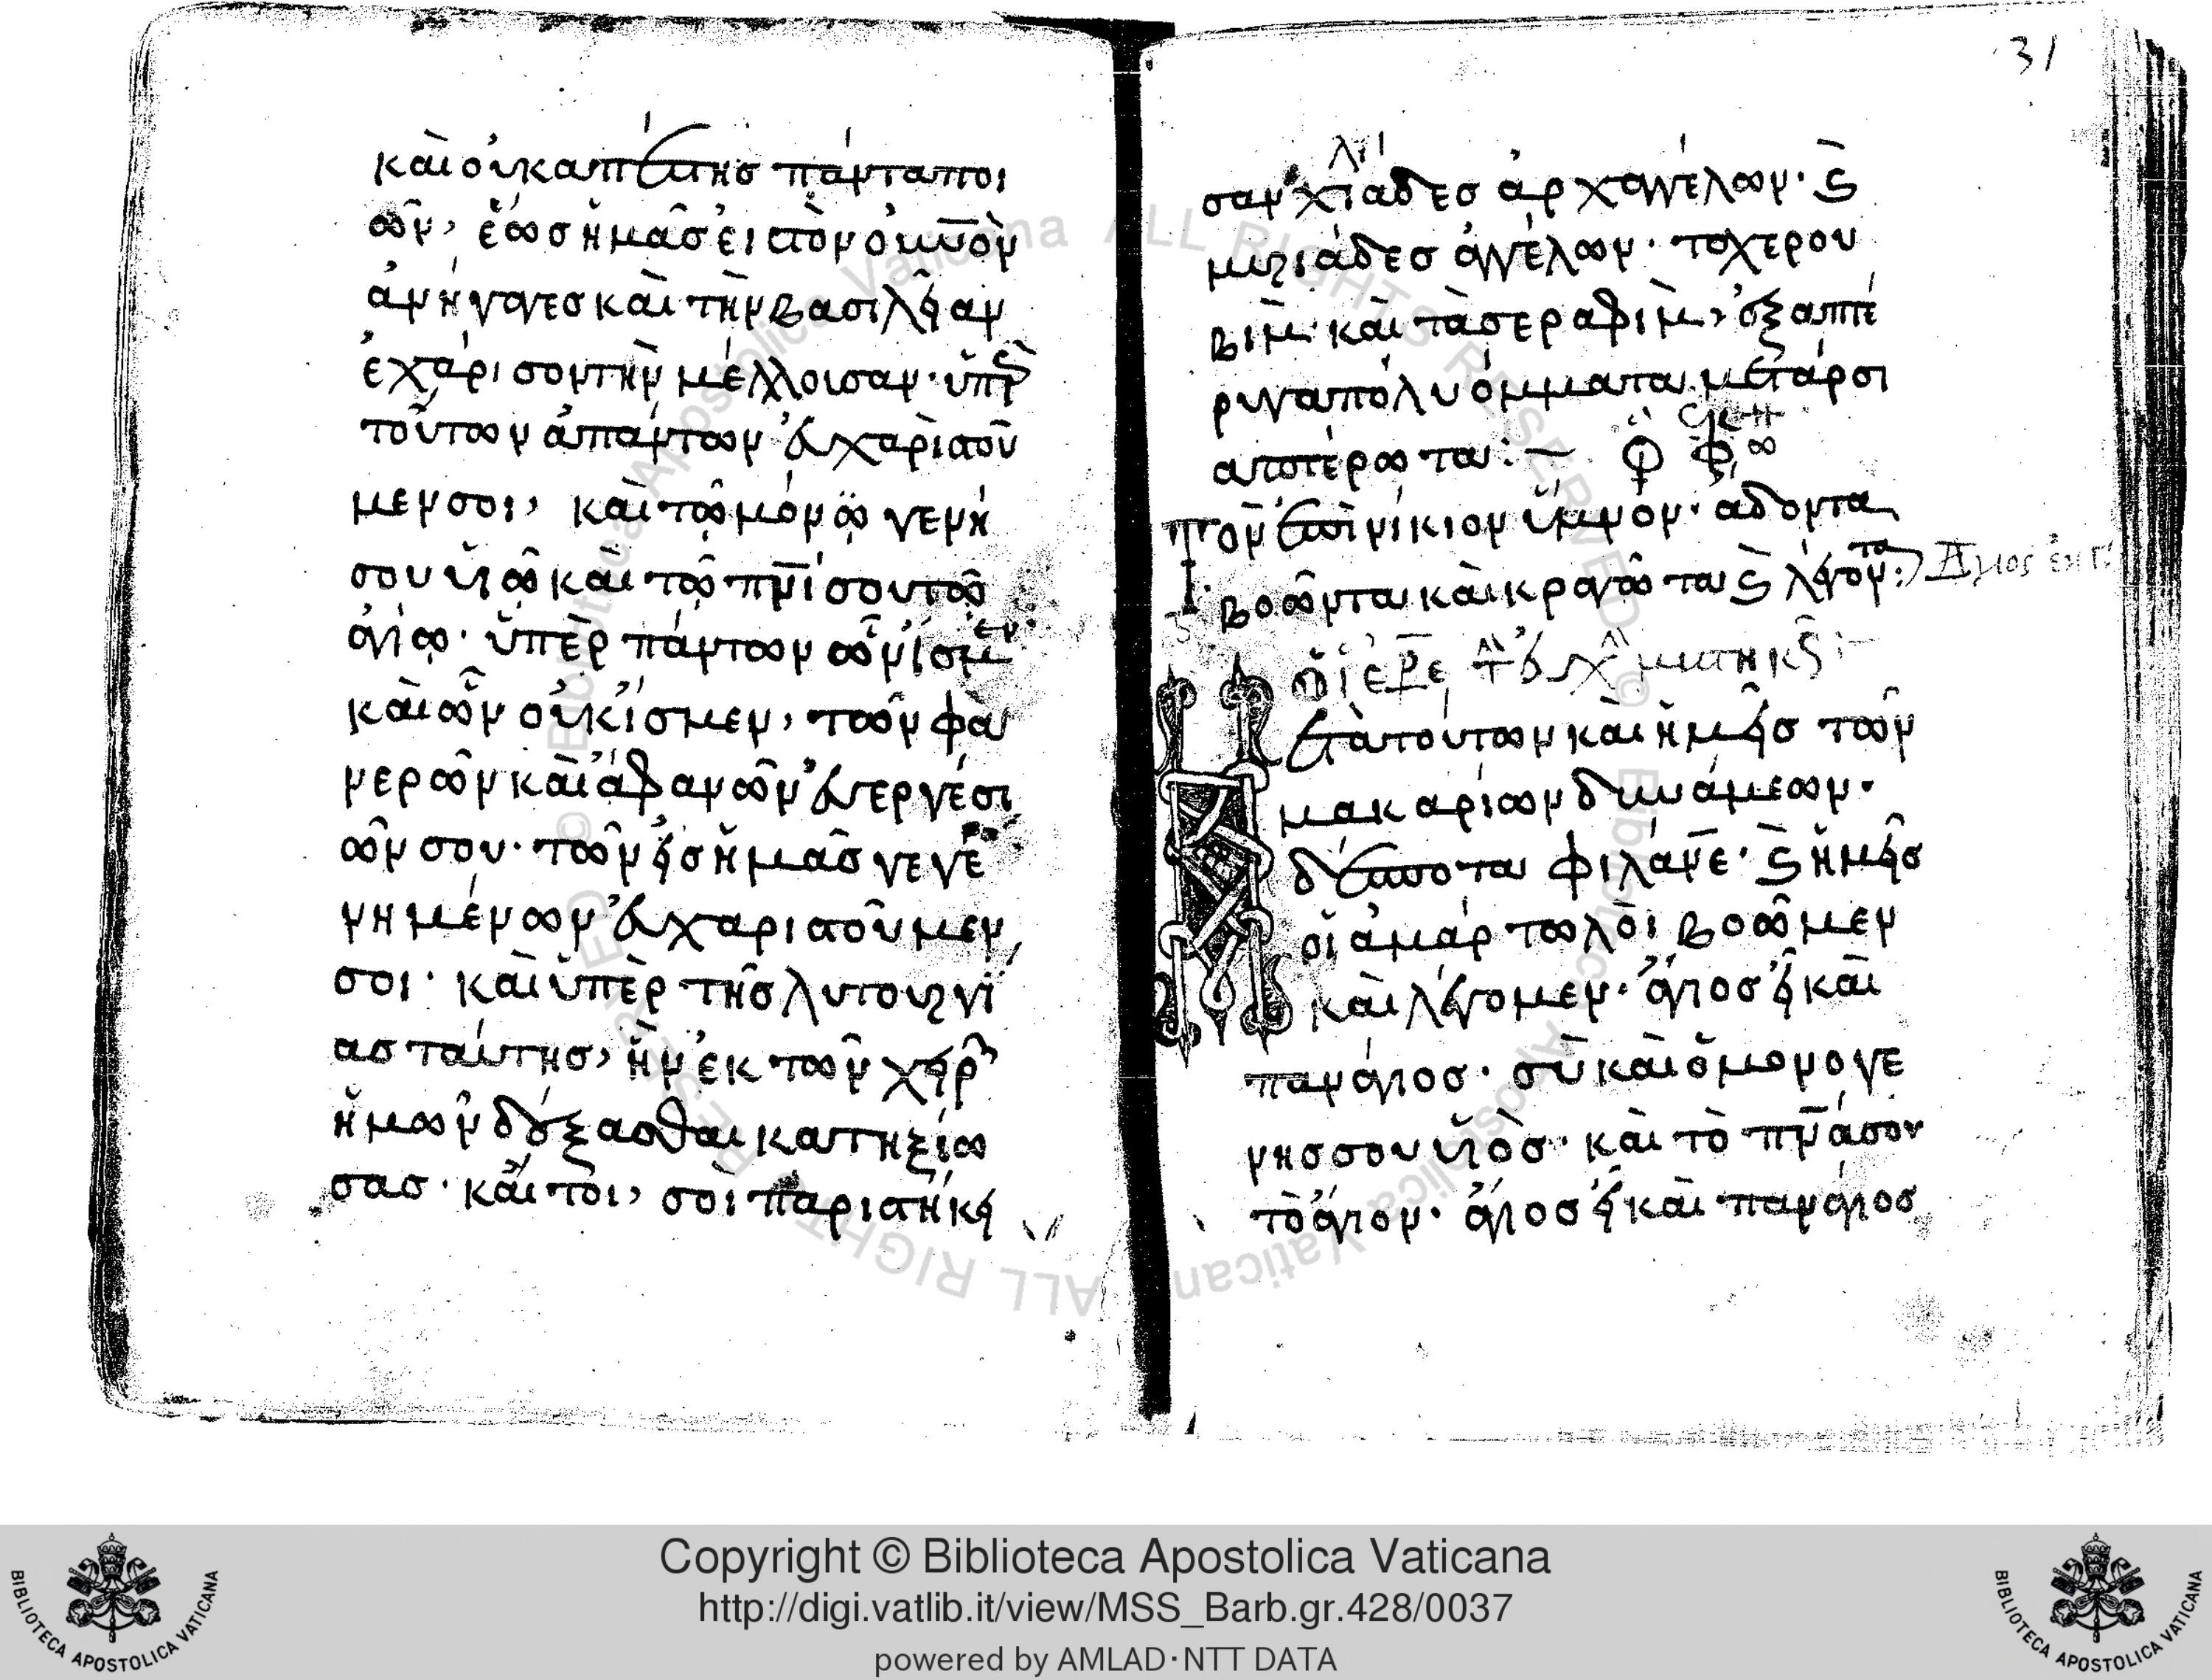 καὶ οὐκ ἀπέστης πάντα ποι
ῶν, ἕως ἡμᾶς εἰς τὸν οὐνὸν
ἀνήγαγες καὶ τὴν βασιλείαν
ἐχαρίσου τὴν μέλλουσαν· ὑπὲρ
τούτων ἁπάντων εὐχαριστοῦ
μεν σοι, καὶ τῶ μονογενῆ
σου υἱῶ καὶ τῶ πνι σου τῶ
ἁγίω· ὑπὲρ πάντων ὧν ἴσμεν
καὶ ὧν οὐκ ἴσμεν, τῶν φα
νερῶν καὶ ἀφανῶν εὐεργεσι
ῶν σου· τῶν εἰς ἡμᾶς γεγε
νημένων εὐχαριστοῦμεν
σοι· καὶ ὑπὲρ τῆς λυτουργί
ας ταύτης, ἣν ἐκ τῶν χειρ
ἡμῶν δέξασθαι κατηξίω
σας· καί τοι, σοὶ παριστήκει
31
λι
σαν χιάδες ἀρχαγγέλων· ϛ
μυριάδες ἀγγέλων· τὰ χερου
βὶμ καὶ τὰ σεραφὶμ, ἑξαπτέ
ρυγα πολυόμματα μετάρσι
α πτερωτά:
Τὸν ἐπινίκιον ὕμνον· άδοντα
βοῶντα καὶ κραγῶτα ϛ λέγοντα: Ἅγιος ἐκ γ
Μετὰ τούτων καὶ ἡμεῖς τῶν
μακαρίων δυνάμεων·
δέσποτα φιλάνε· ϛ ἡμεῖς
οἱ ἁμαρτωλοὶ βοῶμεν
καὶ λέγομεν· ἅγιος εἶ καὶ
πανάγιος· σὺ καὶ ὁ μονογε
νης σου υἱὸς· καὶ τὸ πνα σου
τὸ ἅγιον· ἅγιος εἶ καὶ πανάγιος
Copyright © Biblioteca Apostolica Vaticana
http://digi.vatlib.it/view/MSS_Barb.gr.428/0037
powered by AMLAD·NTT DATA
BIBLIOTECA APOSTOLICA VATICANA
BIBLIOTECA APOSTOLICA VATICANA